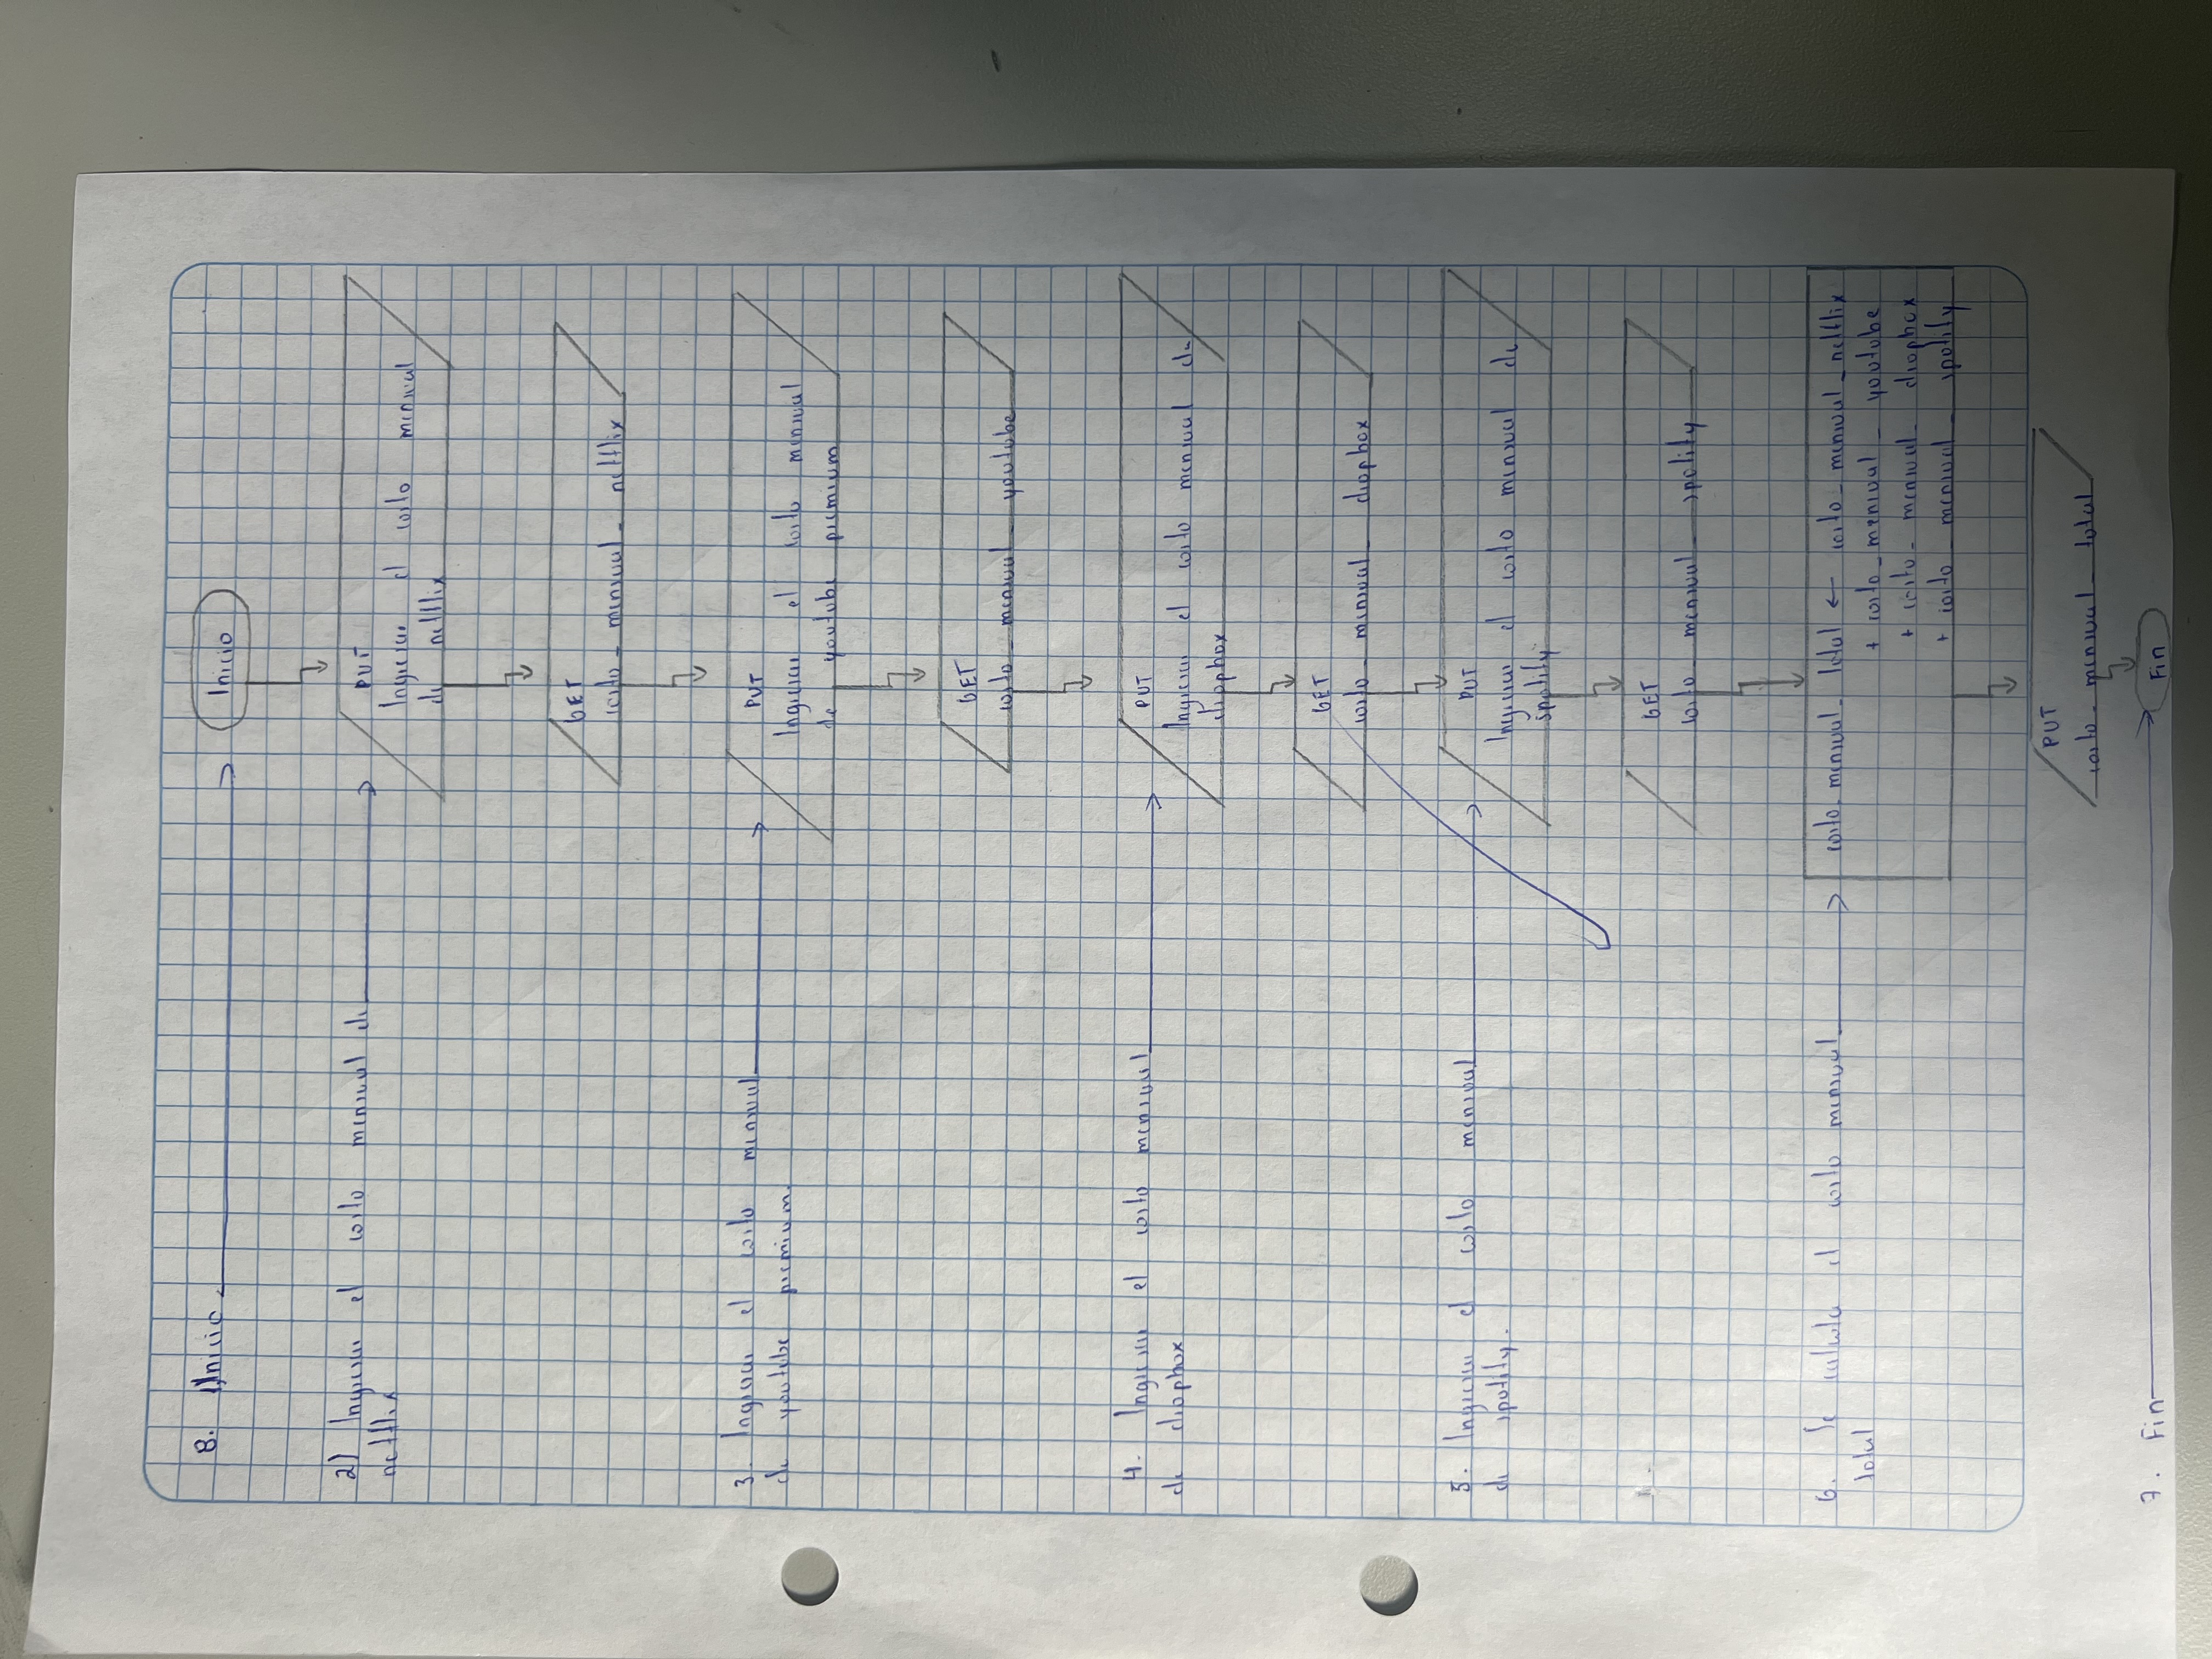 8. 1) Inicio
Inicio
2) Ingresar el costo mensual de
netflix
PUT
Ingresar el costo mensual
de netflix
GET
costo_mensual_netflix
3. Ingresar el costo mensual
de youtube premium
PUT
Ingresar el costo mensual
de youtube premium
GET
costo_mensual_youtube
4. Ingresar el costo mensual
de dropbox
PUT
Ingresar el costo mensual de
dropbox
GET
costo_mensual_dropbox
5. Ingresar el costo mensual
de spotify.
PUT
Ingresar el costo mensual de
spotify
GET
costo_mensual_spotify
6. Se calcula el costo mensual
total
costo_mensual_total ← costo_mensual_netflix
+ costo_mensual_youtube
+ costo_mensual_dropbox
+ costo_mensual_spotify
PUT
costo_mensual_total
7. Fin
Fin